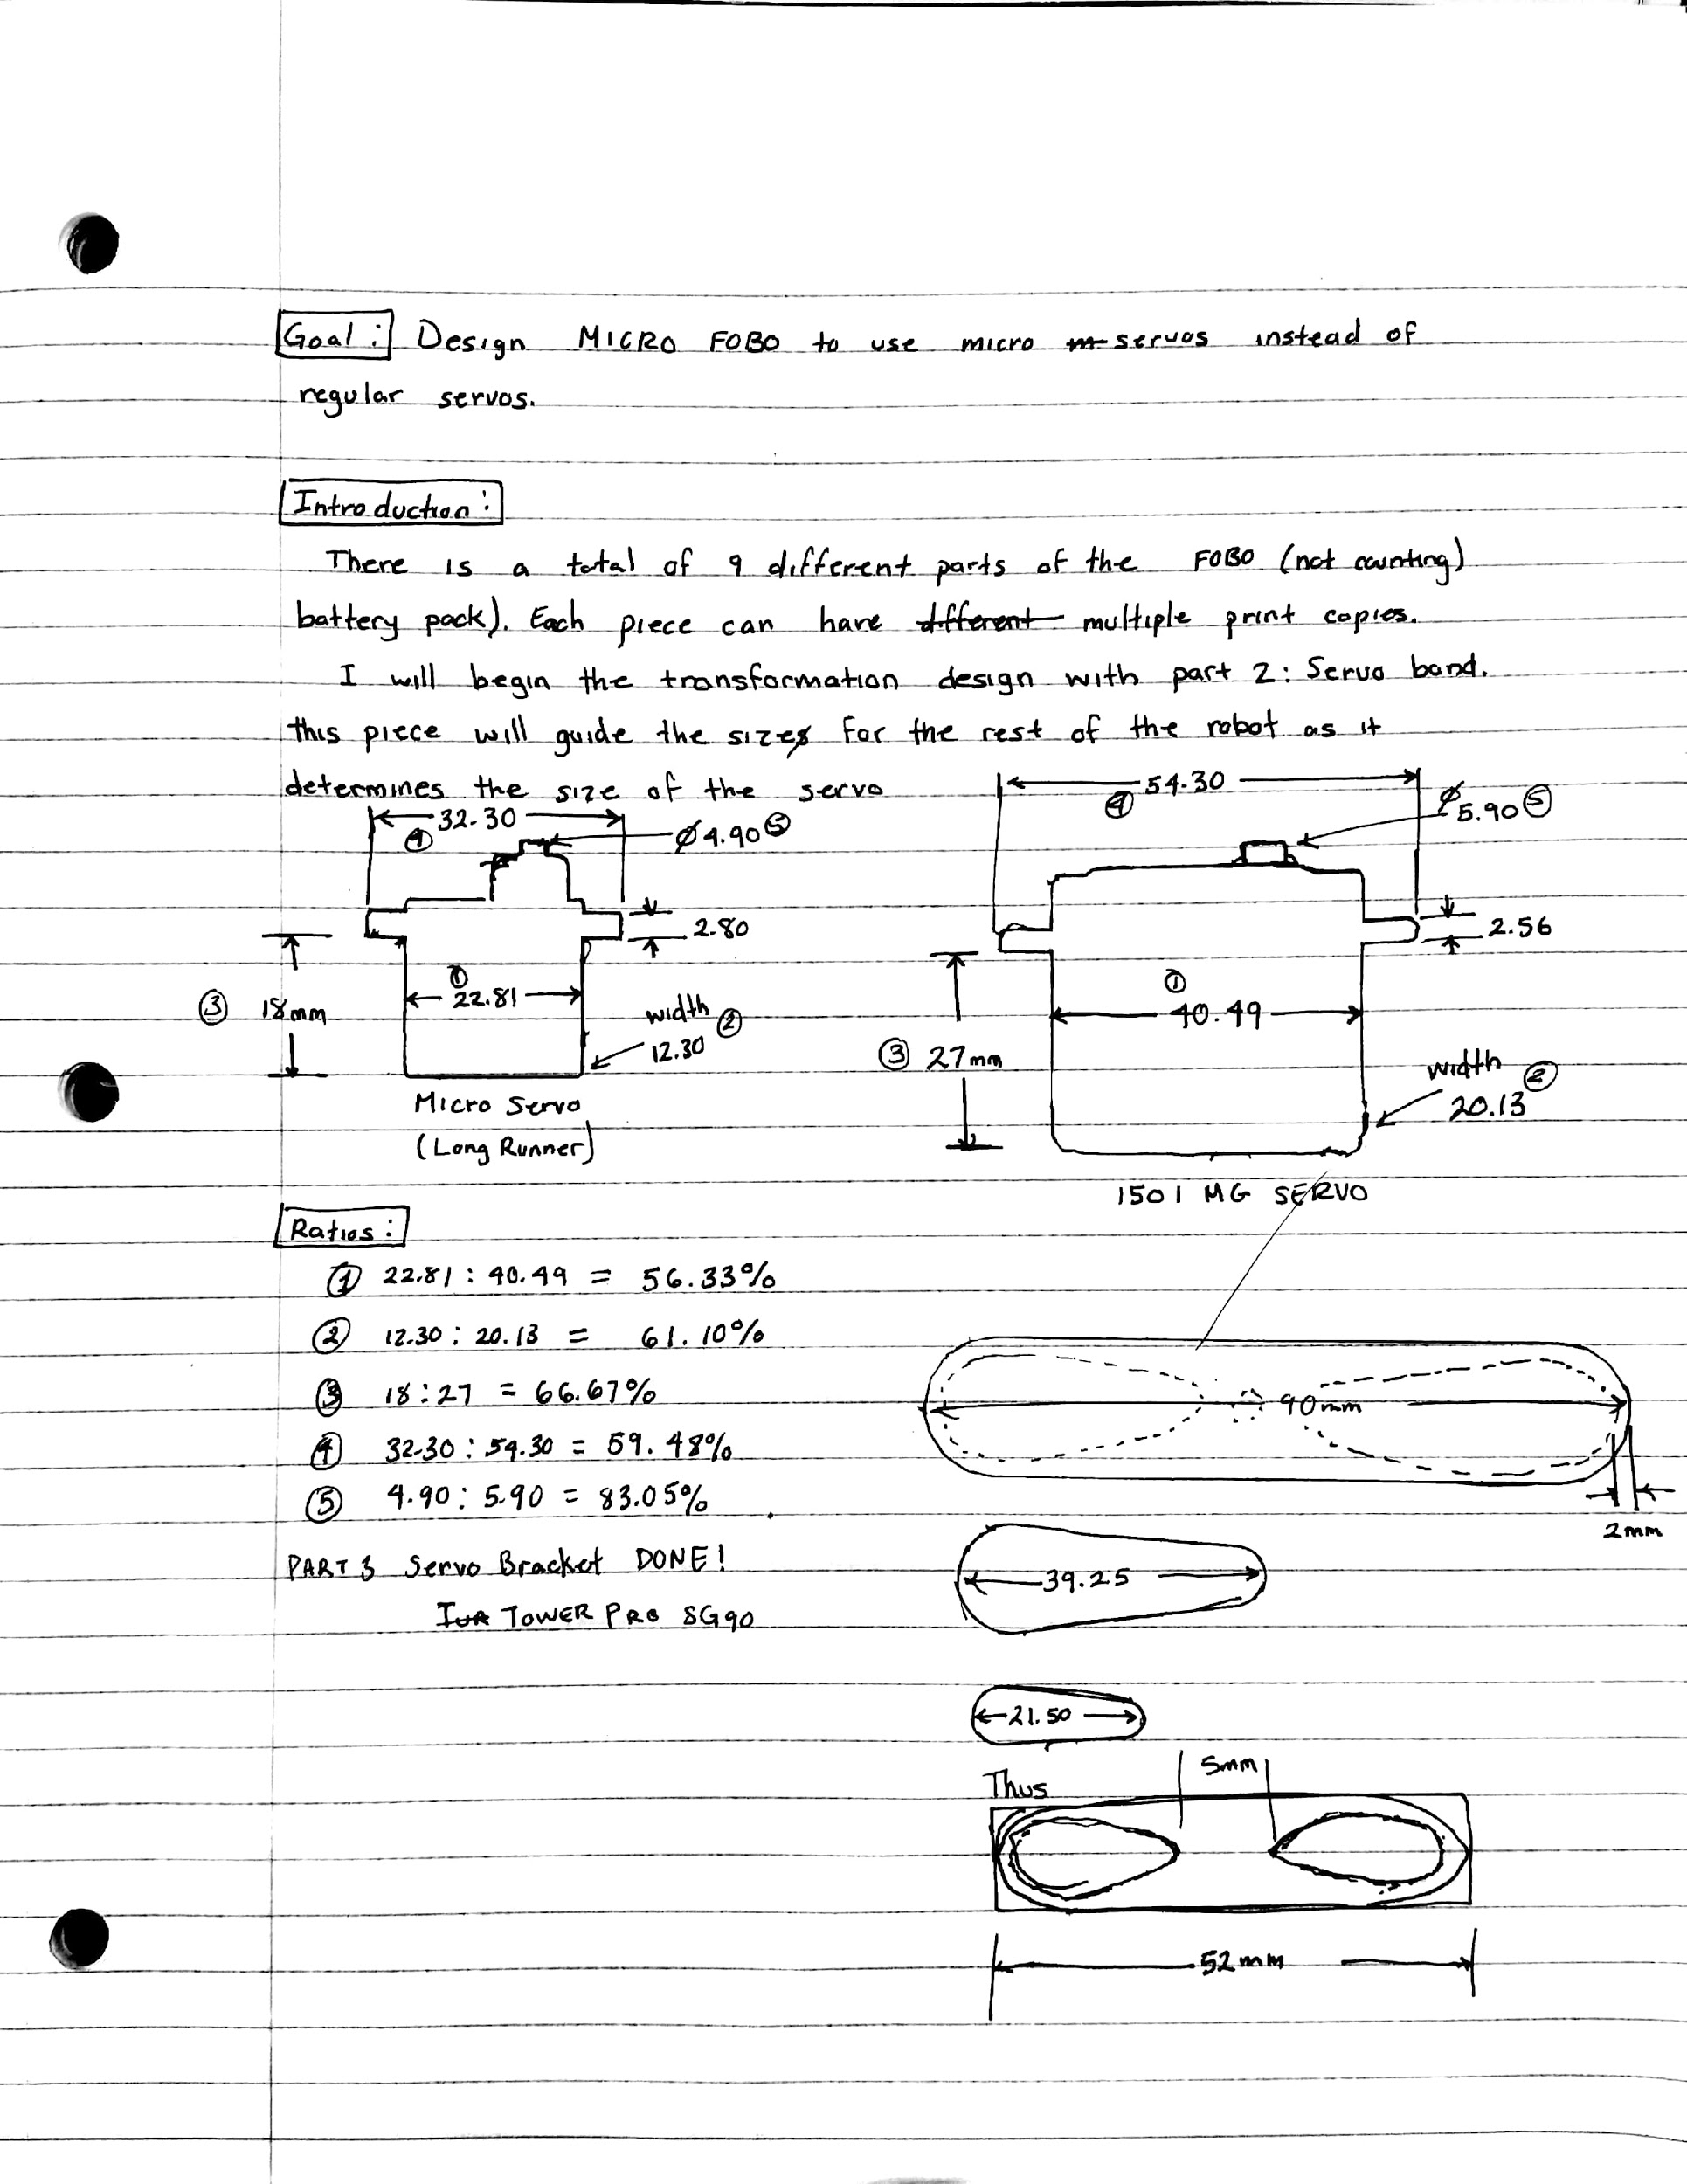 Goal: Design MICRO FOBO to use micro m servos instead of
regular servos.
Introduction:
There is a total of 9 different parts of the FOBO (not counting)
battery pack). Each piece can have different multiple print copies.
I will begin the transformation design with part 2: Servo band.
this piece will guide the sizes for the rest of the robot as it
determines the size of the servo
32.30
④
Ø4.90 ⑤
2.80
①
22.81
③ 18mm
width ②
12.30
Micro Servo
(Long Runner)
54.30
④
Ø5.90 ⑤
2.56
①
40.49
③ 27mm
width ②
20.13
1501 MG SERVO
Ratios:
① 22.81 : 40.49 = 56.33%
② 12.30 : 20.13 = 61.10%
③ 18:27 = 66.67%
④ 32.30 : 54.30 = 59.48%
⑤ 4.90 : 5.90 = 83.05%
PART 3 Servo Bracket DONE!
TOWER PRO SG90
90mm
2mm
39.25
21.50
Thus
5mm
52mm